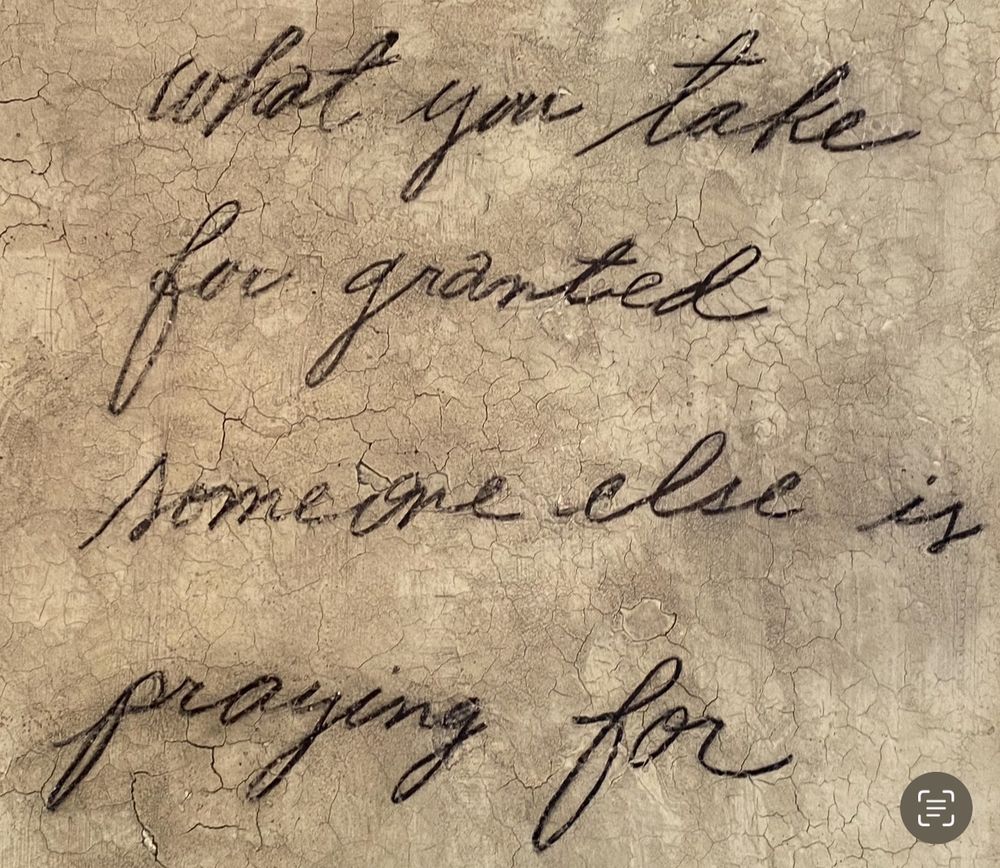 what you take
for granted
someone else is
praying for